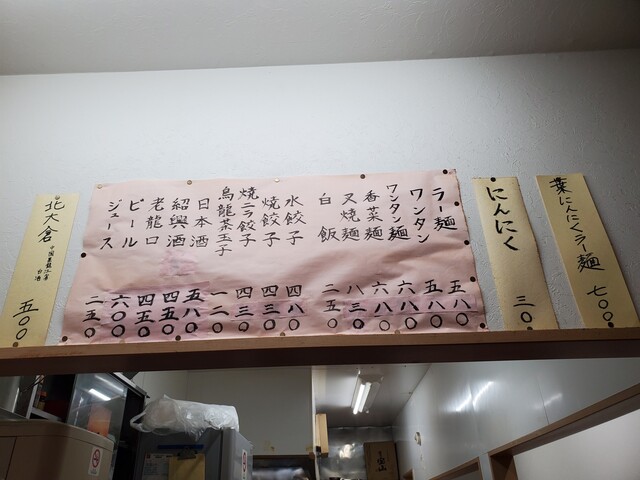 葉にんにくラー麺 七〇〇
にんにく 三〇
ラー麺 五八〇
ワンタン 五八〇
ワンタン麺 六八〇
香菜麺 六八〇
叉焼麺 八三〇
白飯 二五〇
水餃子 四八〇
焼餃子 四三〇
焼ニラ餃子 四三〇
烏龍茶玉子 一二〇
日本酒 五八〇
紹興酒 四五〇
老龍口 四五〇
ビール 六〇〇
ジュース 二五〇
北大倉 五〇〇
中国黒龍江省
白酒